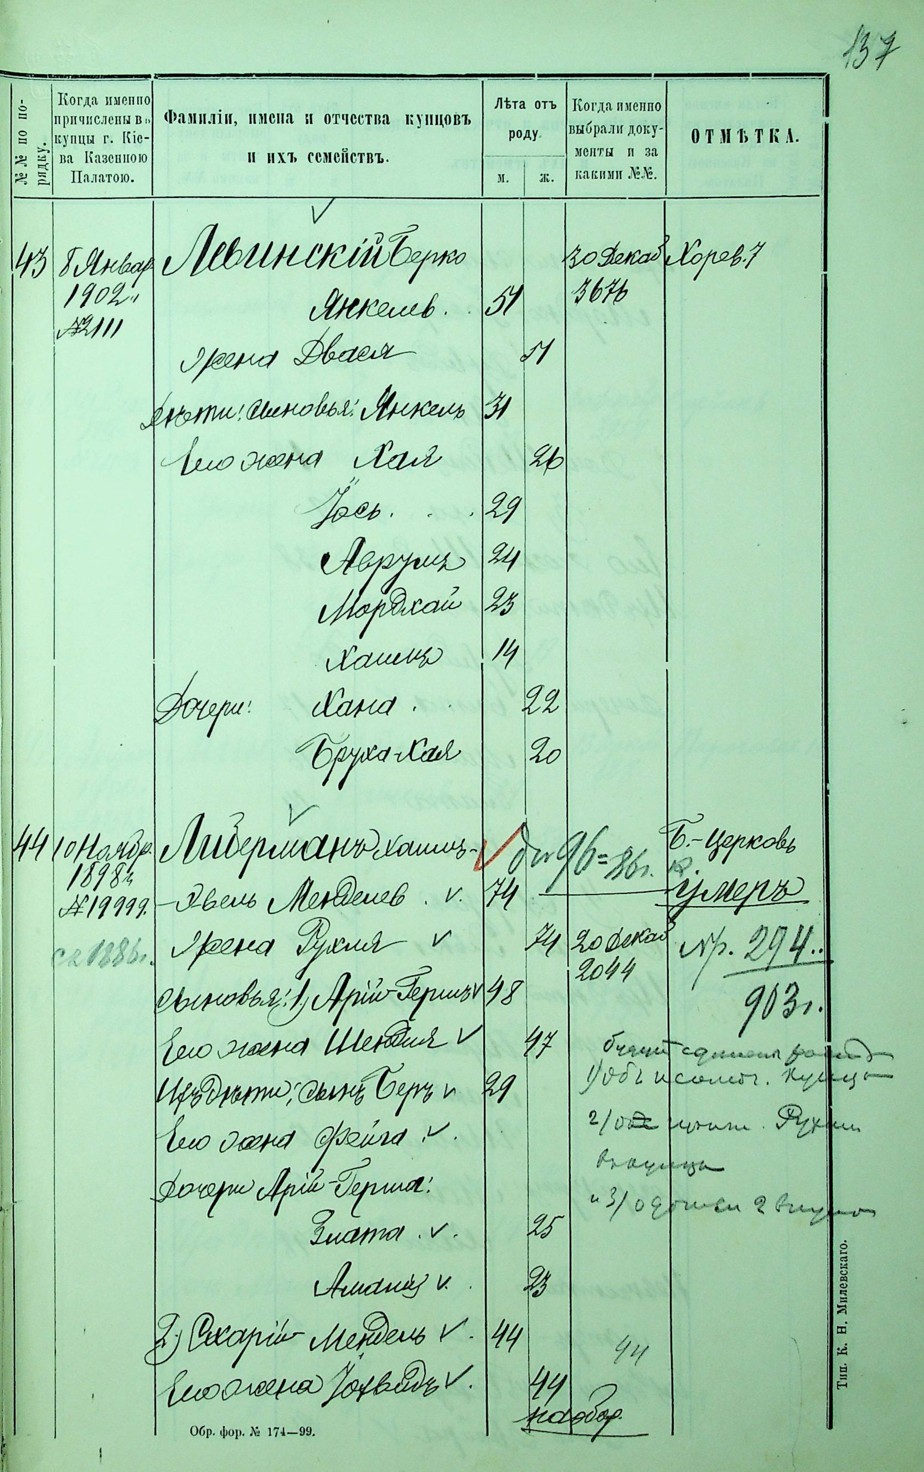 137
№№ по по-
рядку.
Когда именно
причислены въ
купцы г. Кіе-
ва Казенною
Палатою.
Фамиліи, имена и отчества купцовъ
и ихъ семействъ.
Лѣта отъ
роду.
м. ж.
Когда именно
выбрали доку-
менты и за
какими №№.
ОТМѢТКА.
43 8 Январ. Левинскій Берко 30 Декаб Хорев. 7
1902 Янкелев. 51 3676
№2111
жена Двася 51
Дѣти: Сыновья: Янкель 31
Его жена Хая 26
Іось 29
Аврумъ 24
Мордхай 23
Хаимъ 14
Дочери: Хана 22
Бруха-Хая 20
44 10 Ноябр. Либерманъ Хаимъ- Б.-Церковь
1898 96 = 86г.
№19999. Явель Менделев. 74 умеръ
съ 1886г. жена Рухля 74 20 Декаб Пр. 294
2044
Сыновья: 1) Арій-Гершъ 48 903г.
Его жена Шендля 47
Ихъ дѣти: сынъ Беръ 29 1) Объ
Его жена Фейга 2) Рухли
Дочери Арій-Герша: вдовица
Злата 25 и 3)
23
2) Сахарій-Мендель 44 44
Его жена Іохвидъ 44
на обор.
Обр. фор. № 174—99.
Тип. К. Н. Милевскаго.